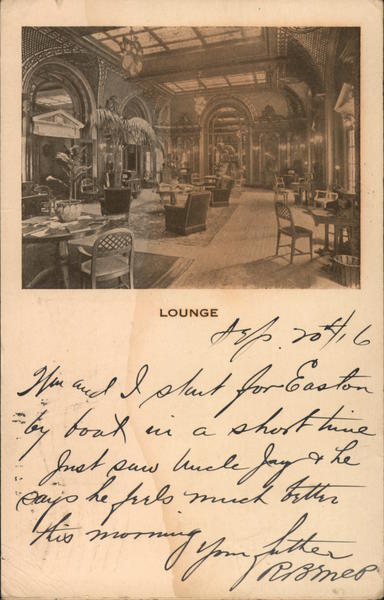 LOUNGE
Sep. 20th/16
Wm and I start for Easton
by boat in a short time
Just saw Uncle Jay & he
says he feels much better
this morning
Your father